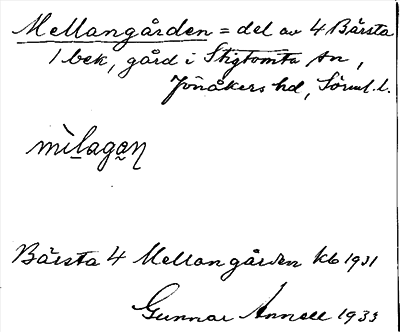 Mellangården = del av 4 Bärsta
1 bek, gård i Stigtomta sn,
Jönåkers hd, Sörml. l.
mìlagan
Bärsta 4 Mellangården kb 1931
Gunnar Annell 1933